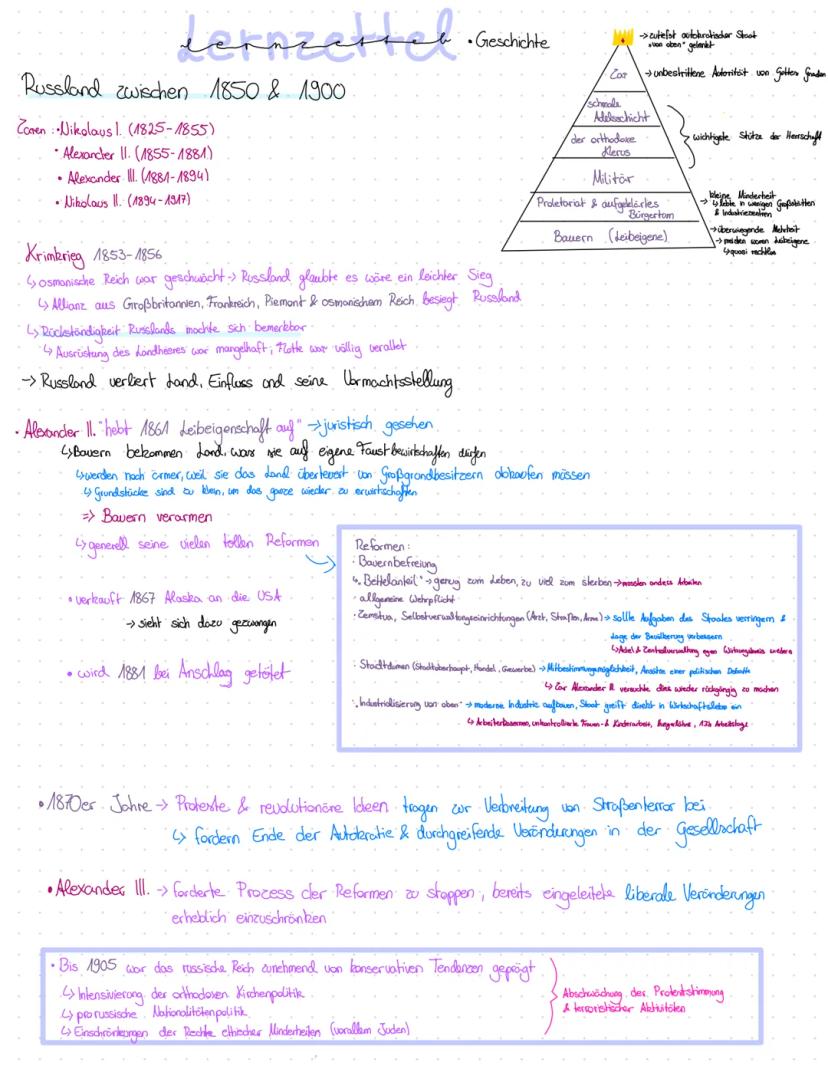 Lernzettel
lernzettel • Geschichte
→ zutiefst autokratischer Staat
"von oben" gelenkt
Russland zwischen 1850 & 1900
Zar → unbestrittene Autorität von Gottes Gnaden
schmale
Adelsschicht
der orthodoxe
Klerus
wichtigste Stütze der Herrschaft
Militär
Proletariat & aufgeklärtes
Bürgertum
→ kleine Minderheit
↳ lebte in wenigen Großstädten
& Industriezentren
Bauern (Leibeigene)
→ überwiegende Mehrheit
→ meisten waren Leibeigene
↳ quasi rechtlos
Zaren: • Nikolaus I. (1825-1855)
• Alexander II. (1855-1881)
• Alexander III. (1881-1894)
• Nikolaus II. (1894-1917)
Krimkrieg 1853-1856
↳ osmanische Reich war geschwächt → Russland glaubte es wäre ein leichter Sieg
↳ Allianz aus Großbritannien, Frankreich, Piemont & osmanischem Reich besiegt Russland
↳ Rückständigkeit Russlands machte sich bemerkbar
↳ Ausrüstung des Landheeres war mangelhaft, Flotte war völlig veraltet
→ Russland verliert Land, Einfluss und seine Vormachtsstellung
• Alexander II. "hebt 1861 Leibeigenschaft auf" → juristisch gesehen
↳ Bauern bekommen Land, was sie auf eigene Faust bewirtschaften dürfen
↳ werden noch ärmer, weil sie das Land überteuert von Großgrundbesitzern abkaufen müssen
↳ Grundstücke sind zu klein, um das ganze wieder zu erwirtschaften
⇒ Bauern verarmen
↳ generell seine vielen tollen Reformen
• verkauft 1867 Alaska an die USA
→ sieht sich dazu gezwungen
• wird 1881 bei Anschlag getötet
Reformen:
• Bauernbefreiung
↳ "Bettelanteil" → genug zum Leben, zu viel zum sterben → mussten anders Arbeiten
• allgemeine Wehrpflicht
• Zemstva, Selbstverwaltungseinrichtungen (Arzt, Straßen, Arme) → sollte Aufgaben des Staates verringern &
Lage der Bevölkerung verbessern
↳ Adel & Zentralverwaltung
• Stadtdumen (Stadtoberhaupt, Handel, Gewerbe) → Mitbestimmungsmöglichkeit, Ansätze einer politischen Debatte
↳ Zar Alexander II. versuchte dies wieder rückgängig zu machen
• "Industrialisierung von oben" → moderne Industrie aufbauen, Staat greift direkt in Wirtschaftsleben ein
↳ Arbeiterkasernen, unkontrollierte Frauen- & Kinderarbeit, Hungerlöhne, 17h Arbeitstage
• 1870er Jahre → Proteste & revolutionäre Ideen tragen zur Verbreitung von Straßenterror bei
↳ fordern Ende der Autokratie & durchgreifende Veränderungen in der Gesellschaft
• Alexander III. → forderte Prozess der Reformen zu stoppen, bereits eingeleitete liberale Veränderungen
erheblich einzuschränken
• Bis 1905 war das russische Reich zunehmend von konservativen Tendenzen geprägt
↳ Intensivierung der orthodoxen Kirchenpolitik
↳ prorussische Nationalitätenpolitik
↳ Einschränkungen der Rechte ethischer Minderheiten (vorallem Juden)
Abschwächung der Proteststimmung
& terroristischer Aktivitäten